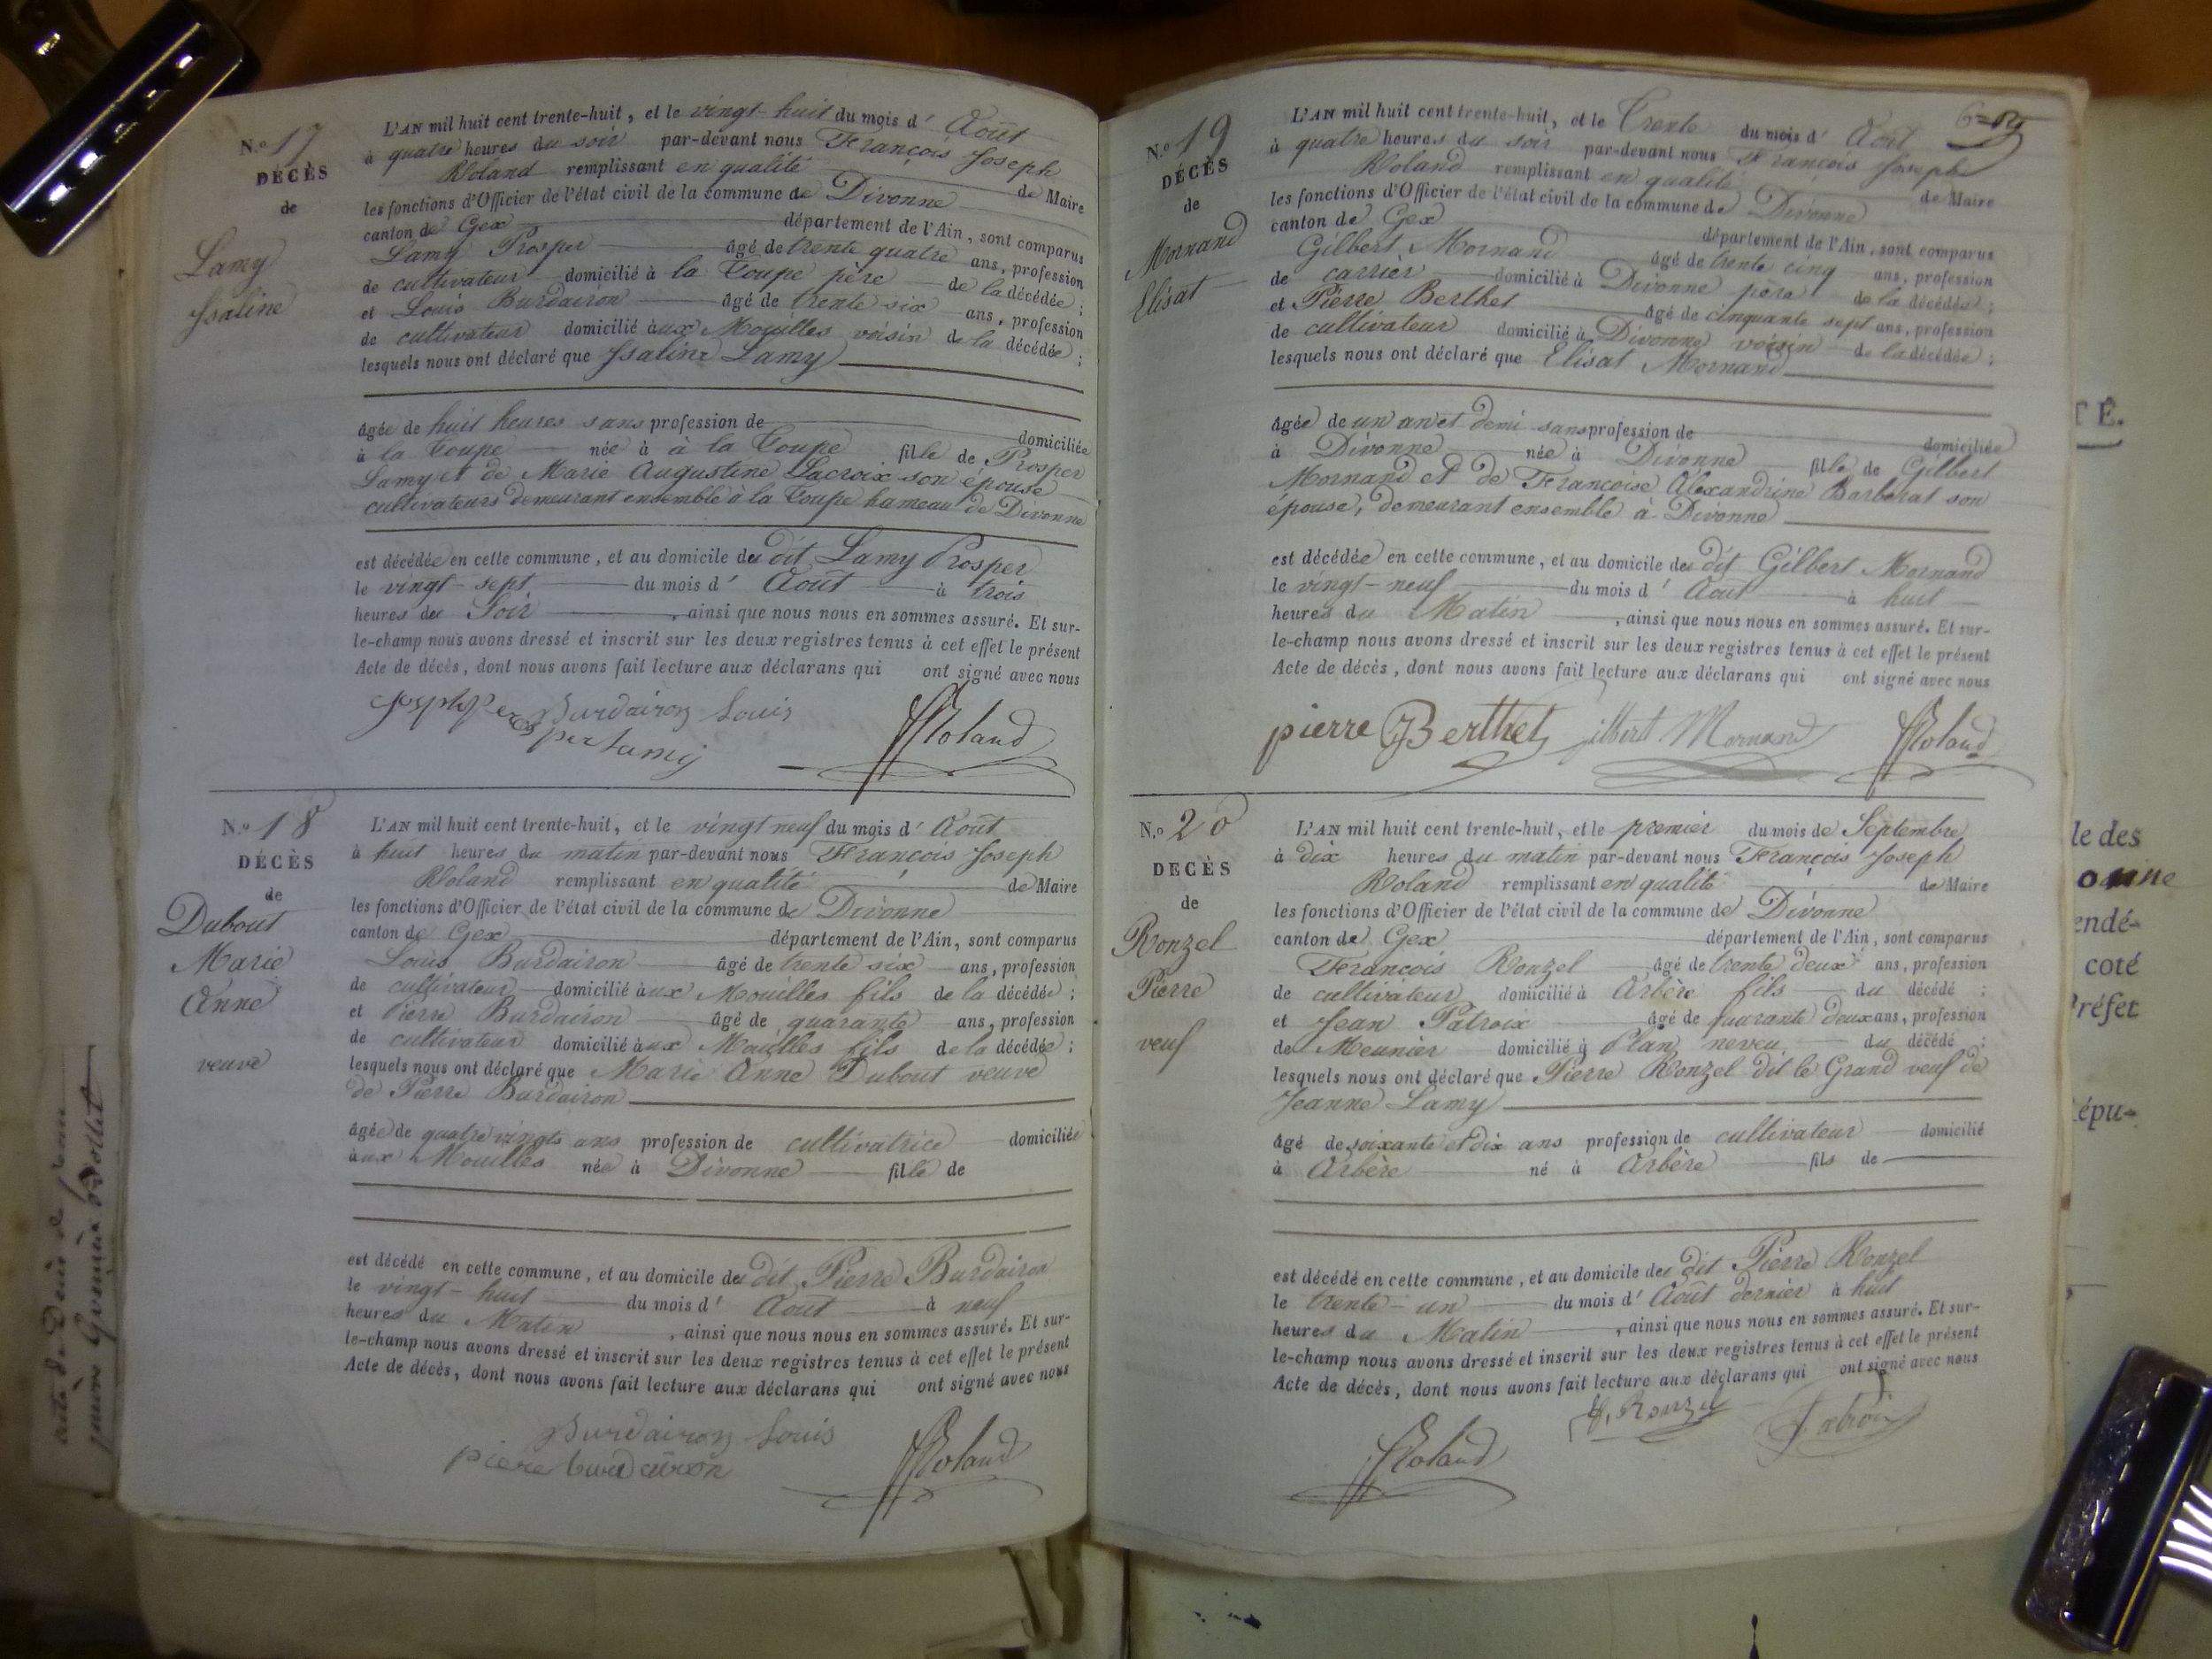 N.o 17
DÉCÈS
de
Lamy
Isaline
L'AN mil huit cent trente-huit, et le vingt-huit du mois d' Août
à quatre heures du soir par-devant nous François Joseph
Roland remplissant en qualité de Maire
les fonctions d'Officier de l'état civil de la commune de Divonne
canton de Gex département de l'Ain, sont comparus
Lamy Prosper âgé de trente quatre ans, profession
de cultivateur domicilié à la Coupe père de la décédée ;
et Louis Burdairon âgé de trente six ans, profession
de cultivateur domicilié aux Mouilles voisin de la décédée ;
lesquels nous ont déclaré que Isaline Lamy
âgée de huit heures sans profession de domiciliée
à la Coupe née à à la Coupe fille de Prosper
Lamy et de Marie Augustine Lacroix son épouse
cultivateurs demeurant ensemble à la Coupe hameau de Divonne
est décédée en cette commune, et au domicile du dit Lamy Prosper
le vingt-sept du mois d' Août à trois
heures du Soir, ainsi que nous nous en sommes assuré. Et sur-
le-champ nous avons dressé et inscrit sur les deux registres tenus à cet effet le présent
Acte de décès, dont nous avons fait lecture aux déclarans qui ont signé avec nous
Burdairon Louis
Lamy
FRoland
N.o 18
DÉCÈS
de
Dubout
Marie
Anne
veuve
L'AN mil huit cent trente-huit, et le vingt neuf du mois d' Août
à huit heures du matin par-devant nous François Joseph
Roland remplissant en qualité de Maire
les fonctions d'Officier de l'état civil de la commune de Divonne
canton de Gex département de l'Ain, sont comparus
Louis Burdairon âgé de trente six ans, profession
de cultivateur domicilié aux Mouilles fils de la décédée ;
et Pierre Burdairon âgé de quarante ans, profession
de cultivateur domicilié aux Mouilles fils de la décédée ;
lesquels nous ont déclaré que Marie Anne Dubout veuve
de Pierre Burdairon
âgée de quatre vingts ans profession de cultivatrice domiciliée
aux Mouilles née à Divonne fille de
est décédé en cette commune, et au domicile du dit Pierre Burdairon
le vingt-huit du mois d' Août à neuf
heures du Matin, ainsi que nous nous en sommes assuré. Et sur-
le-champ nous avons dressé et inscrit sur les deux registres tenus à cet effet le présent
Acte de décès, dont nous avons fait lecture aux déclarans qui ont signé avec nous
Burdairon Louis
piere burdairon
FRoland
N.o 19
DÉCÈS
de
Mornand
Elisat
L'AN mil huit cent trente-huit, et le Trente du mois d' Août
à quatre heures du soir par-devant nous François Joseph
Roland remplissant en qualité de Maire
les fonctions d'Officier de l'état civil de la commune de Divonne
canton de Gex département de l'Ain, sont comparus
Gilbert Mornand âgé de trente cinq ans, profession
de carrier domicilié à Divonne père de la décédée ;
et Pierre Berthet âgé de cinquante sept ans, profession
de cultivateur domicilié à Divonne voisin de la décédée ;
lesquels nous ont déclaré que Elisat Mornand
âgée de un an et demi sans profession de domiciliée
à Divonne née à Divonne fille de Gilbert
Mornand et de Francoise Alexandrine Barberat son
épouse, demeurant ensemble à Divonne
est décédée en cette commune, et au domicile du dit Gilbert Mornand
le vingt-neuf du mois d' Août à huit
heures du Matin, ainsi que nous nous en sommes assuré. Et sur-
le-champ nous avons dressé et inscrit sur les deux registres tenus à cet effet le présent
Acte de décès, dont nous avons fait lecture aux déclarans qui ont signé avec nous
pierre Berthet gilbert Mornand FRoland
N.o 20
DÉCÈS
de
Ronzel
Pierre
veuf
L'AN mil huit cent trente-huit, et le premier du mois de Septembre
à dix heures du matin par-devant nous François Joseph
Roland remplissant en qualité de Maire
les fonctions d'Officier de l'état civil de la commune de Divonne
canton de Gex département de l'Ain, sont comparus
Francois Ronzel âgé de trente deux ans, profession
de cultivateur domicilié à Arbère fils du décédé ;
et Jean Patroix âgé de quarante deux ans, profession
de Meunier domicilié à Plan neveu du décédé ;
lesquels nous ont déclaré que Pierre Ronzel dit le Grand veuf de
Jeanne Lamy
âgé de soixante et dix ans profession de cultivateur domicilié
à Arbère né à Arbère fils de
est décédé en cette commune, et au domicile du dit Pierre Ronzel
le trente-un du mois d' Août dernier à huit
heures du Matin, ainsi que nous nous en sommes assuré. Et sur-
le-champ nous avons dressé et inscrit sur les deux registres tenus à cet effet le présent
Acte de décès, dont nous avons fait lecture aux déclarans qui ont signé avec nous
f. Ronzel
FRoland
TÉ.
le des
endé-
coté
Préfet
épu-